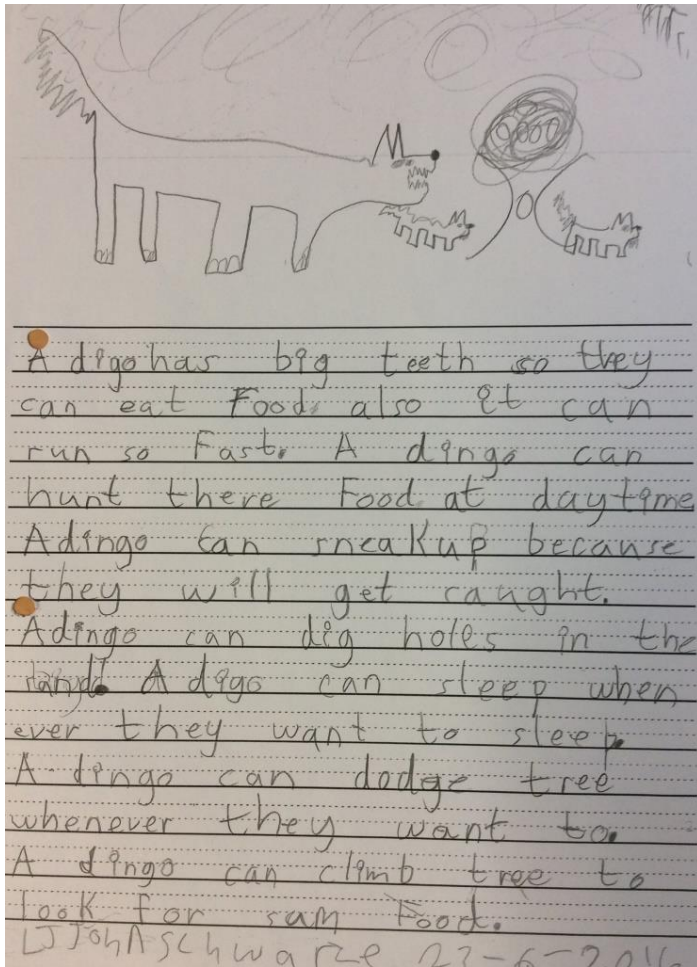 A digo has big teeth so they
can eat Food. also it can
run so Fast. A dingo can
hunt there Food at daytime
A dingo can sneak up because
they will get caught.
A dingo can dig holes in the
A digo can sleep when
ever they want to sleep.
A dingo can dodge tree
whenever they want to.
A dingo can climb tree to
look for sum Food.
23-6-2016